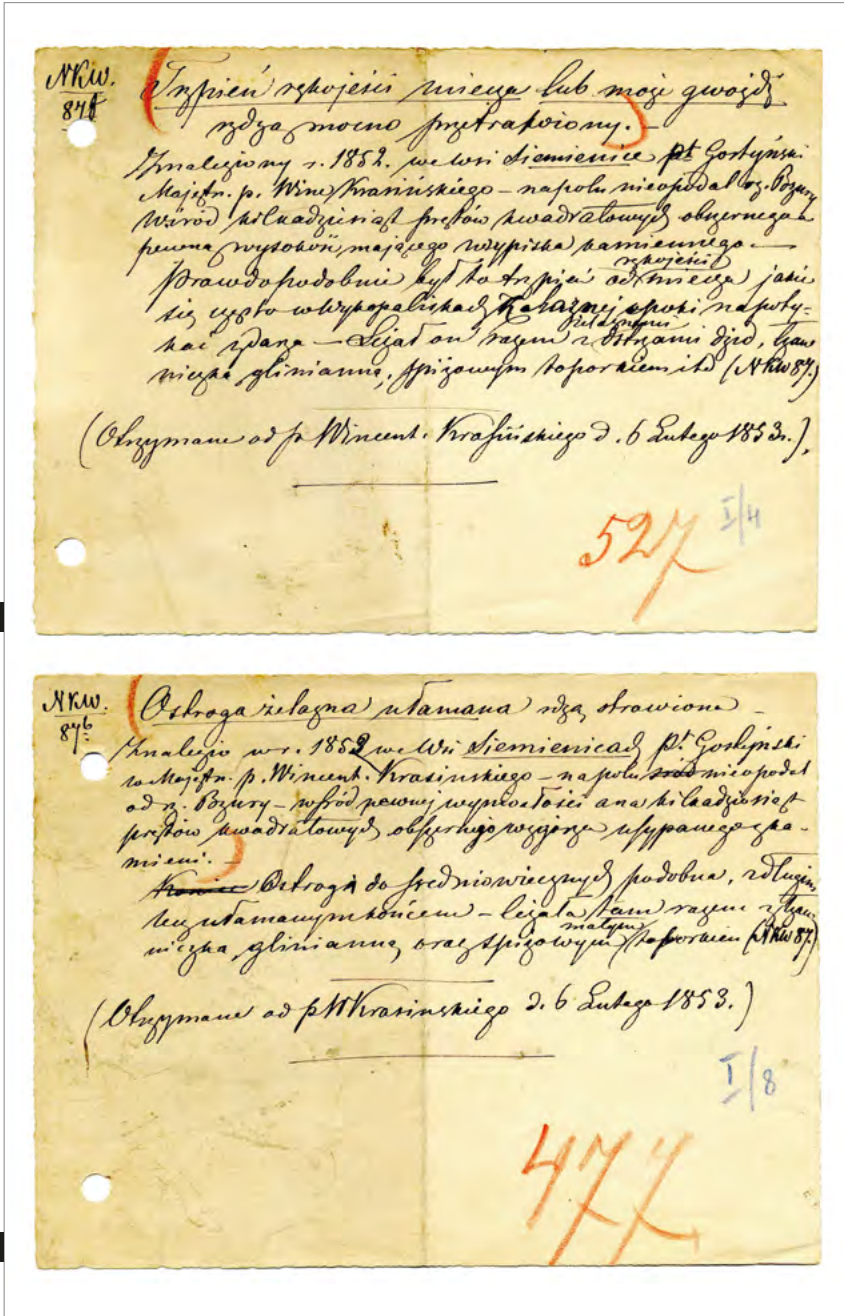 NKW.
87
Trzpień rękojeści miecza lub może gwóźdź
rdzą mocno przetrawiony. —
Znaleziony r. 1852. we wsi Siemienice pt Gostyński
Majętn. p. Winc. Krasińskiego – na polu nieopodal rz. Bzury
wśród kilkadziesiąt prętów kwadratowych obszernego a
pewną wysokość mającego usypiska kamiennego. —
rękojeści
Prawdopodobnie był to trzpień od miecza jakie
się często w wykopaliskach żelaznej epoki napoty-
żelaznemi
kać zdarza — Leżał on razem z ostrzami dzid, łzaw
niczką glinianną, spiżowym toporkiem itd (NKW 87.)
(Otrzymane od p Wincent. Krasińskiego d. 6 Lutego 1853r.).
527 I/4
NKW.
87b
Ostroga żelazna ułamana rdzą strawiona –
Znalezio w r. 1852 we Wsi Siemienicach Pt Gostyński
w Majętn. p. Wincent. Krasinskiego – na polu śród nieopodal
od rz. Bzury – wśród pewnej wyniosłości a na kilkadziesiąt
prętów kwadratowych obszernego wzgórza usypanego z ka-
mieni. –
Koniec Ostroga do średniowiecznych podobna, z długim
lecz ułamanym końcem – leżała tam razem z łzaw
małym
niczką glinianną oraz spiżowym toporkiem (NKW 87.)
(Otrzymane od p W Krasinskiego d. 6 Lutego 1853.)
I/8
477